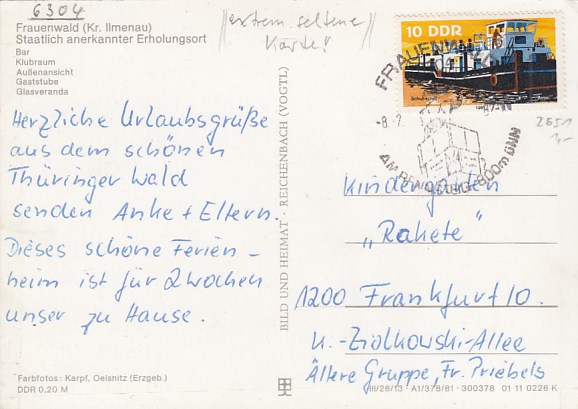 6304
Frauenwald (Kr. Ilmenau)
Staatlich anerkannter Erholungsort
Bar
Klubraum
Außenansicht
Gaststube
Glasveranda
extrem seltene
Karte!
10 DDR
Schubschiff
FRAUENWALD
-8.-7.
AM RENNSTEIG · 800m ÜNN
2651
1,-
Herzliche Urlaubsgrüße
aus dem schönen
Thüringer Wald
senden Anke + Eltern.
Dieses schöne Ferien-
heim ist für 2 Wochen
unser zu Hause.
BILD UND HEIMAT · REICHENBACH (VOGTL)
Kindergarten
„Rakete"
1200 Frankfurt/O.
K.-Ziolkowski-Allee
Ältere Gruppe, Fr. Priebels
Farbfotos: Karpf, Oelsnitz (Erzgeb.)
DDR 0,20 M
III/26/13 · A1/378/81 · 300378 01 11 0226 K